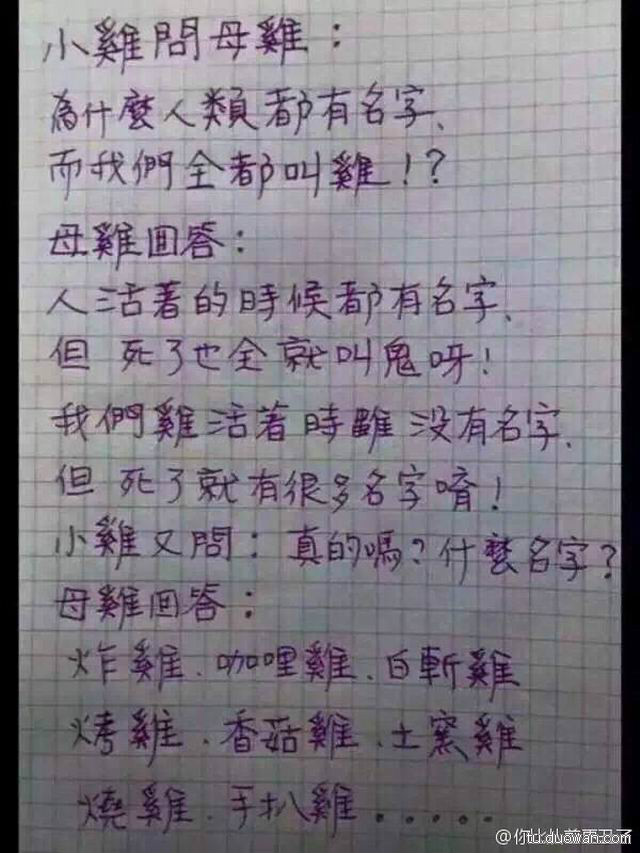 小雞問母雞：
為什麼人類都有名字、
而我們全都叫雞！？
母雞回答：
人活著的時候都有名字、
但死了也全就叫鬼呀！
我們雞活著時雖沒有名字、
但死了就有很多名字唷！
小雞又問：真的嗎？什麼名字？
母雞回答：
炸雞．咖哩雞．白斬雞
烤雞．香菇雞．土窯雞
燒雞．手扒雞......
tu.duowan.com